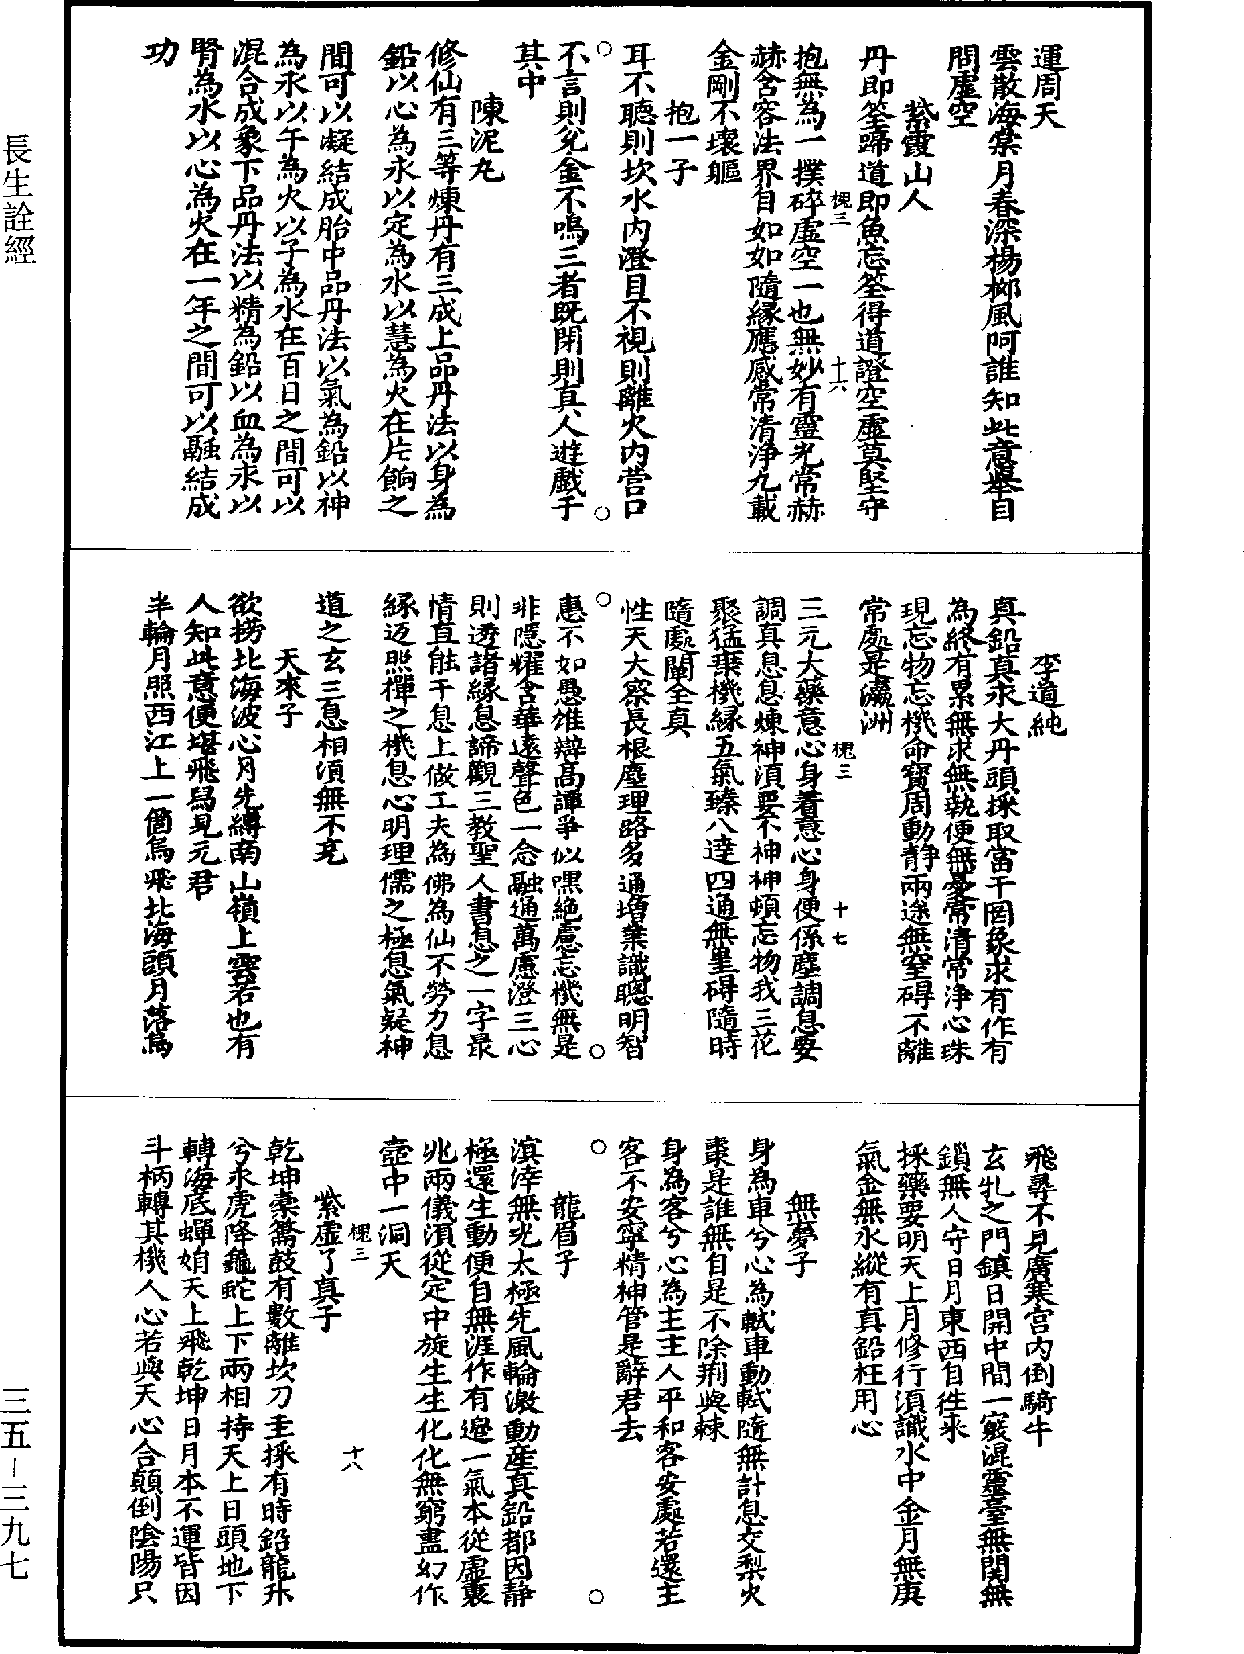 運周天
雲散海棠月春深楊柳風阿誰知此意舉目
問虛空
紫霞山人
丹即筌蹄道即魚忘筌得道證空虛莫堅守
槐三
十六
抱無為一撲碎虛空一也無妙有靈光常赫
赫含容法界自如如隨緣應感常清淨九載
金剛不壞軀
抱一子
耳不聽則坎水内澄目不視則離火内营口
不言則兌金不鳴三者既閉則真人遊戲于
其中
陳泥丸
修仙有三等煉丹有三成上品丹法以身為
鉛以心為汞以定為水以慧為火在片餉之
間可以凝結成胎中品丹法以氣為鉛以神
為汞以午為火以子為水在百日之間可以
混合成象下品丹法以精為鉛以血為汞以
腎為水以心為火在一年之間可以融結成
功
李道純
真鉛真汞大丹頭採取當于罔象求有作有
為終有累無求無執便無憂常清常淨心珠
現忘物忘機命寶周動靜兩途無窒碍不離
常處是瀛洲
槐三
十七
三元大藥意心身着意心身便係塵調息要
調真息息煉神須要不神神頓忘物我三花
聚猛棄機緣五氣臻八達四通無罣碍隨時
隨處闡全真
性天大察長根塵理路多通增業識聰明智
惠不如愚雄辯高譚爭似嘿絶慮忘機無是
非隱耀含華遠聲色一念融通萬慮澄三心
則透諸緣息諦觀三教聖人書息之一字最
情直能于息上做工夫為佛為仙不勞力息
緣迈照禪之機息心明理儒之極息氣凝神
道之玄三息相須無不克
天來子
欲撈北海波心月先縛南山嶺上雲若也有
人知此意便堪飛舄見元君
半輪月照西江上一箇烏飛北海頭月落烏
飛尋不見廣寒宮内倒騎牛
玄牝之門鎮日開中間一竅混靈臺無関無
鎖無人守日月東西自徃來
採藥要明天上月修行須識水中金月無庚
氣金無水縱有真鉛枉用心
無夢子
身為車兮心為軾車動軾隨無計息交梨火
棗是誰無自是不除荆與棘
身為客兮心為主主人平和客安處若還主
客不安寧精神管是辭君去
龍眉子
溟涬無光太極先風輪激動産真鉛都因静
極還生動便自無涯作有邊一氣本從虛裏
兆兩儀須從定中旋生生化化無窮盡幻作
壺中一洞天
槐三
十八
紫虛了真子
乾坤橐籥鼓有數離坎刀圭採有時鉛龍升
兮汞虎降龜蛇上下兩相持天上日頭地下
轉海底蟬娟天上飛乾坤日月本不運皆因
斗柄轉其機人心若與天心合顛倒陰陽只
長生詮經
三五－三九七